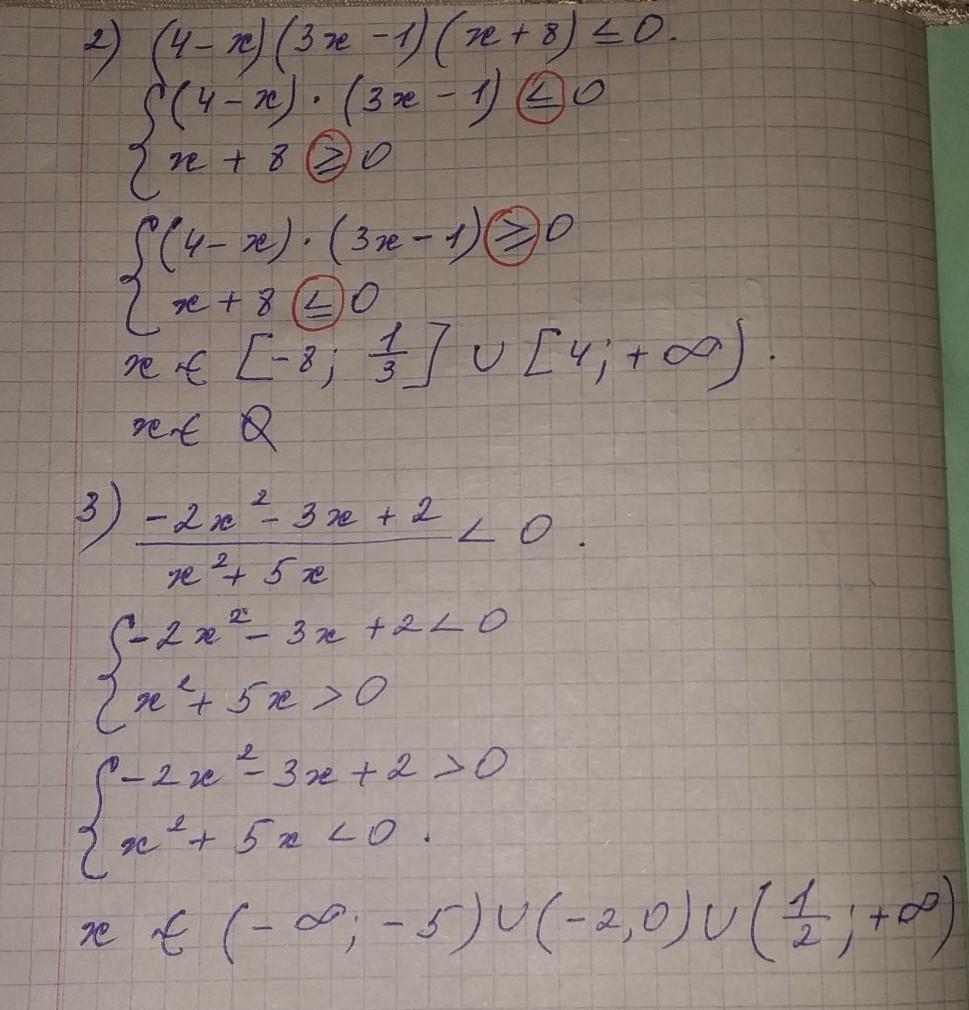 2) (4 - x)(3x - 1)(x + 8) ≤ 0.
{ (4 - x) · (3x - 1) ≤ 0
x + 8 ≥ 0
{ (4 - x) · (3x - 1) ≥ 0
x + 8 ≤ 0
x ∈ [-8; 1/3] ∪ [4; +∞).
x ∈ Q
3) (-2x² - 3x + 2)/(x² + 5x) < 0.
{ -2x² - 3x + 2 < 0
x² + 5x > 0
{ -2x² - 3x + 2 > 0
x² + 5x < 0.
x ∈ (-∞; -5) ∪ (-2, 0) ∪ (1/2; +∞)